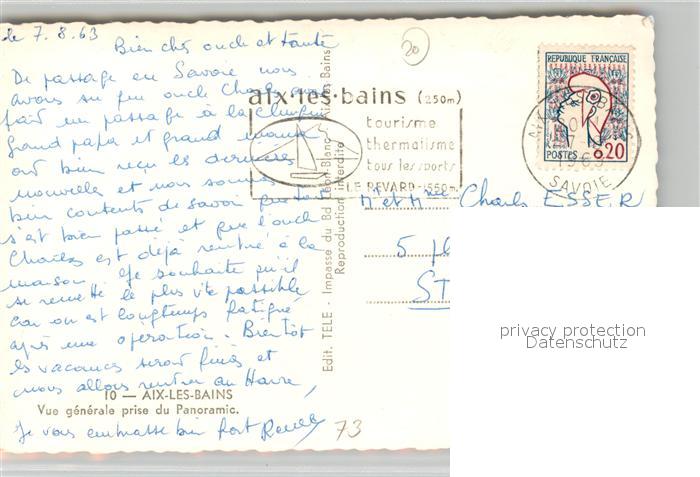 le 7.8.63
Bien cher oncle et tante
De passage en Savoie nous
avons su que oncle Charles avait
fait un passage à la clinique
Grand papa et grand maman
ont bien reçu les dernières
nouvelles et nous sommes
bien contents de savoir que tout
s'est bien passé et que l'oncle
Charles est déjà rentré à la
maison. Je souhaite qu'il
se remette le plus vite possible
car on est longtemps fatigué
après une opération. Bientôt
les vacances seront finies et
nous allons rentrer au Havre,
10 — AIX-LES-BAINS
Vue générale prise du Panoramic.
Je vous embrasse bien fort
73
20
Edit. TELE - Impasse du Bd Léon-Blanc - Aix-les-Bains
Reproduction interdite
aix·les·bains (250m)
tourisme
thermalisme
tous les sports
LE REVARD 1550m
REPUBLIQUE FRANÇAISE
POSTES 0,20
1963
SAVOIE
M et Mme Charles ESSER
5 pl
ST
privacy protection
Datenschutz